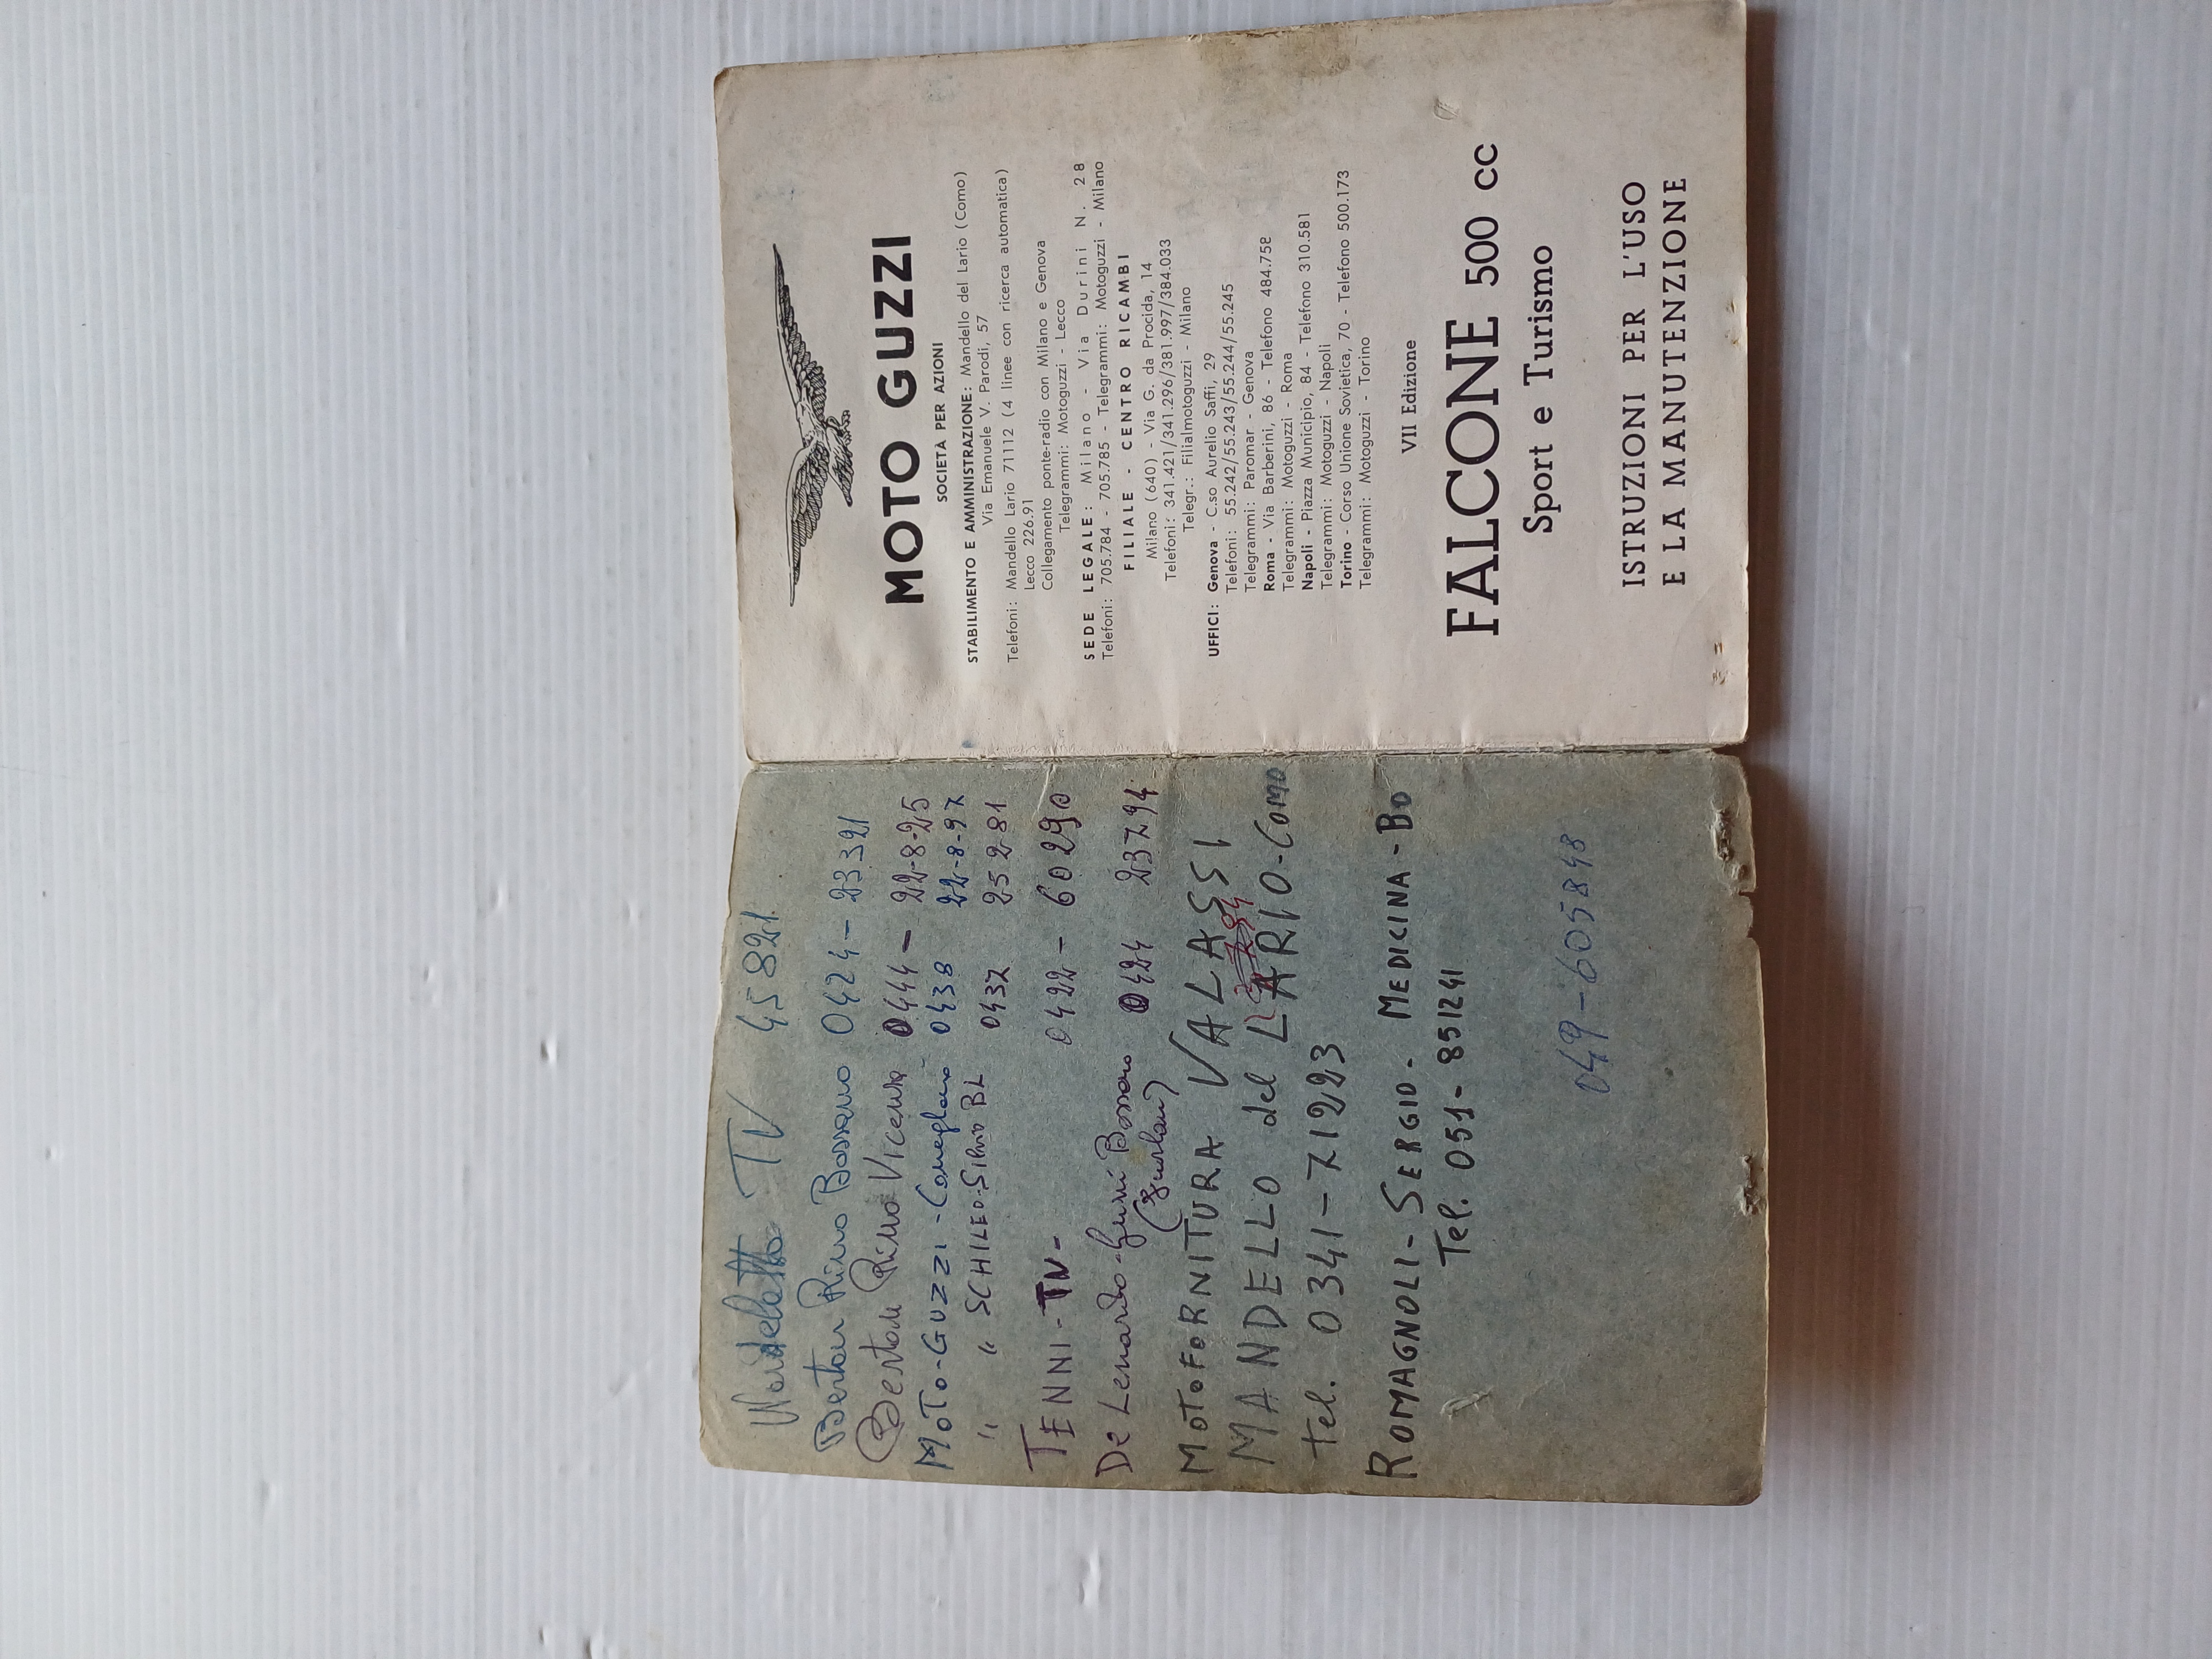 TV 45821
Bertoli Rino Bassano 0424-23321
Bertoli Rino Vicenza 0444-22-8-25
MOTO-GUZZI-Conegliano-0438 22-8-97
" " SCHILEO-Silvio BL 0437 25281
TENNI-TV- 0422-60290
De Lenardo-Guzzi Bassano 0424 23794
MOTOFORNITURA VALASSI
MANDELLO del LARIO-COMO
Tel. 0341-71223
ROMAGNOLI-SERGIO-MEDICINA-BO
Tel. 051-851241
049-605848
MOTO GUZZI
SOCIETÀ PER AZIONI
STABILIMENTO E AMMINISTRAZIONE: Mandello del Lario (Como)
Via Emanuele V. Parodi, 57
Telefoni: Mandello Lario 71112 (4 linee con ricerca automatica)
Lecco 226.91
Collegamento ponte-radio con Milano e Genova
Telegrammi: Motoguzzi - Lecco
SEDE LEGALE: Milano - Via Durini N. 28
Telefoni: 705.784 - 705.785 - Telegrammi: Motoguzzi - Milano
FILIALE - CENTRO RICAMBI
Milano (640) - Via G. da Procida, 14
Telefoni: 341.421/341.296/381.997/384.033
Telegr.: Filialmotoguzzi - Milano
UFFICI: Genova - C.so Aurelio Saffi, 29
Telefoni: 55.242/55.243/55.244/55.245
Telegrammi: Paromar - Genova
Roma - Via Barberini, 86 - Telefono 484.758
Telegrammi: Motoguzzi - Roma
Napoli - Piazza Municipio, 84 - Telefono 310.581
Telegrammi: Motoguzzi - Napoli
Torino - Corso Unione Sovietica, 70 - Telefono 500.173
Telegrammi: Motoguzzi - Torino
VII Edizione
FALCONE 500 cc
Sport e Turismo
ISTRUZIONI PER L'USO
E LA MANUTENZIONE